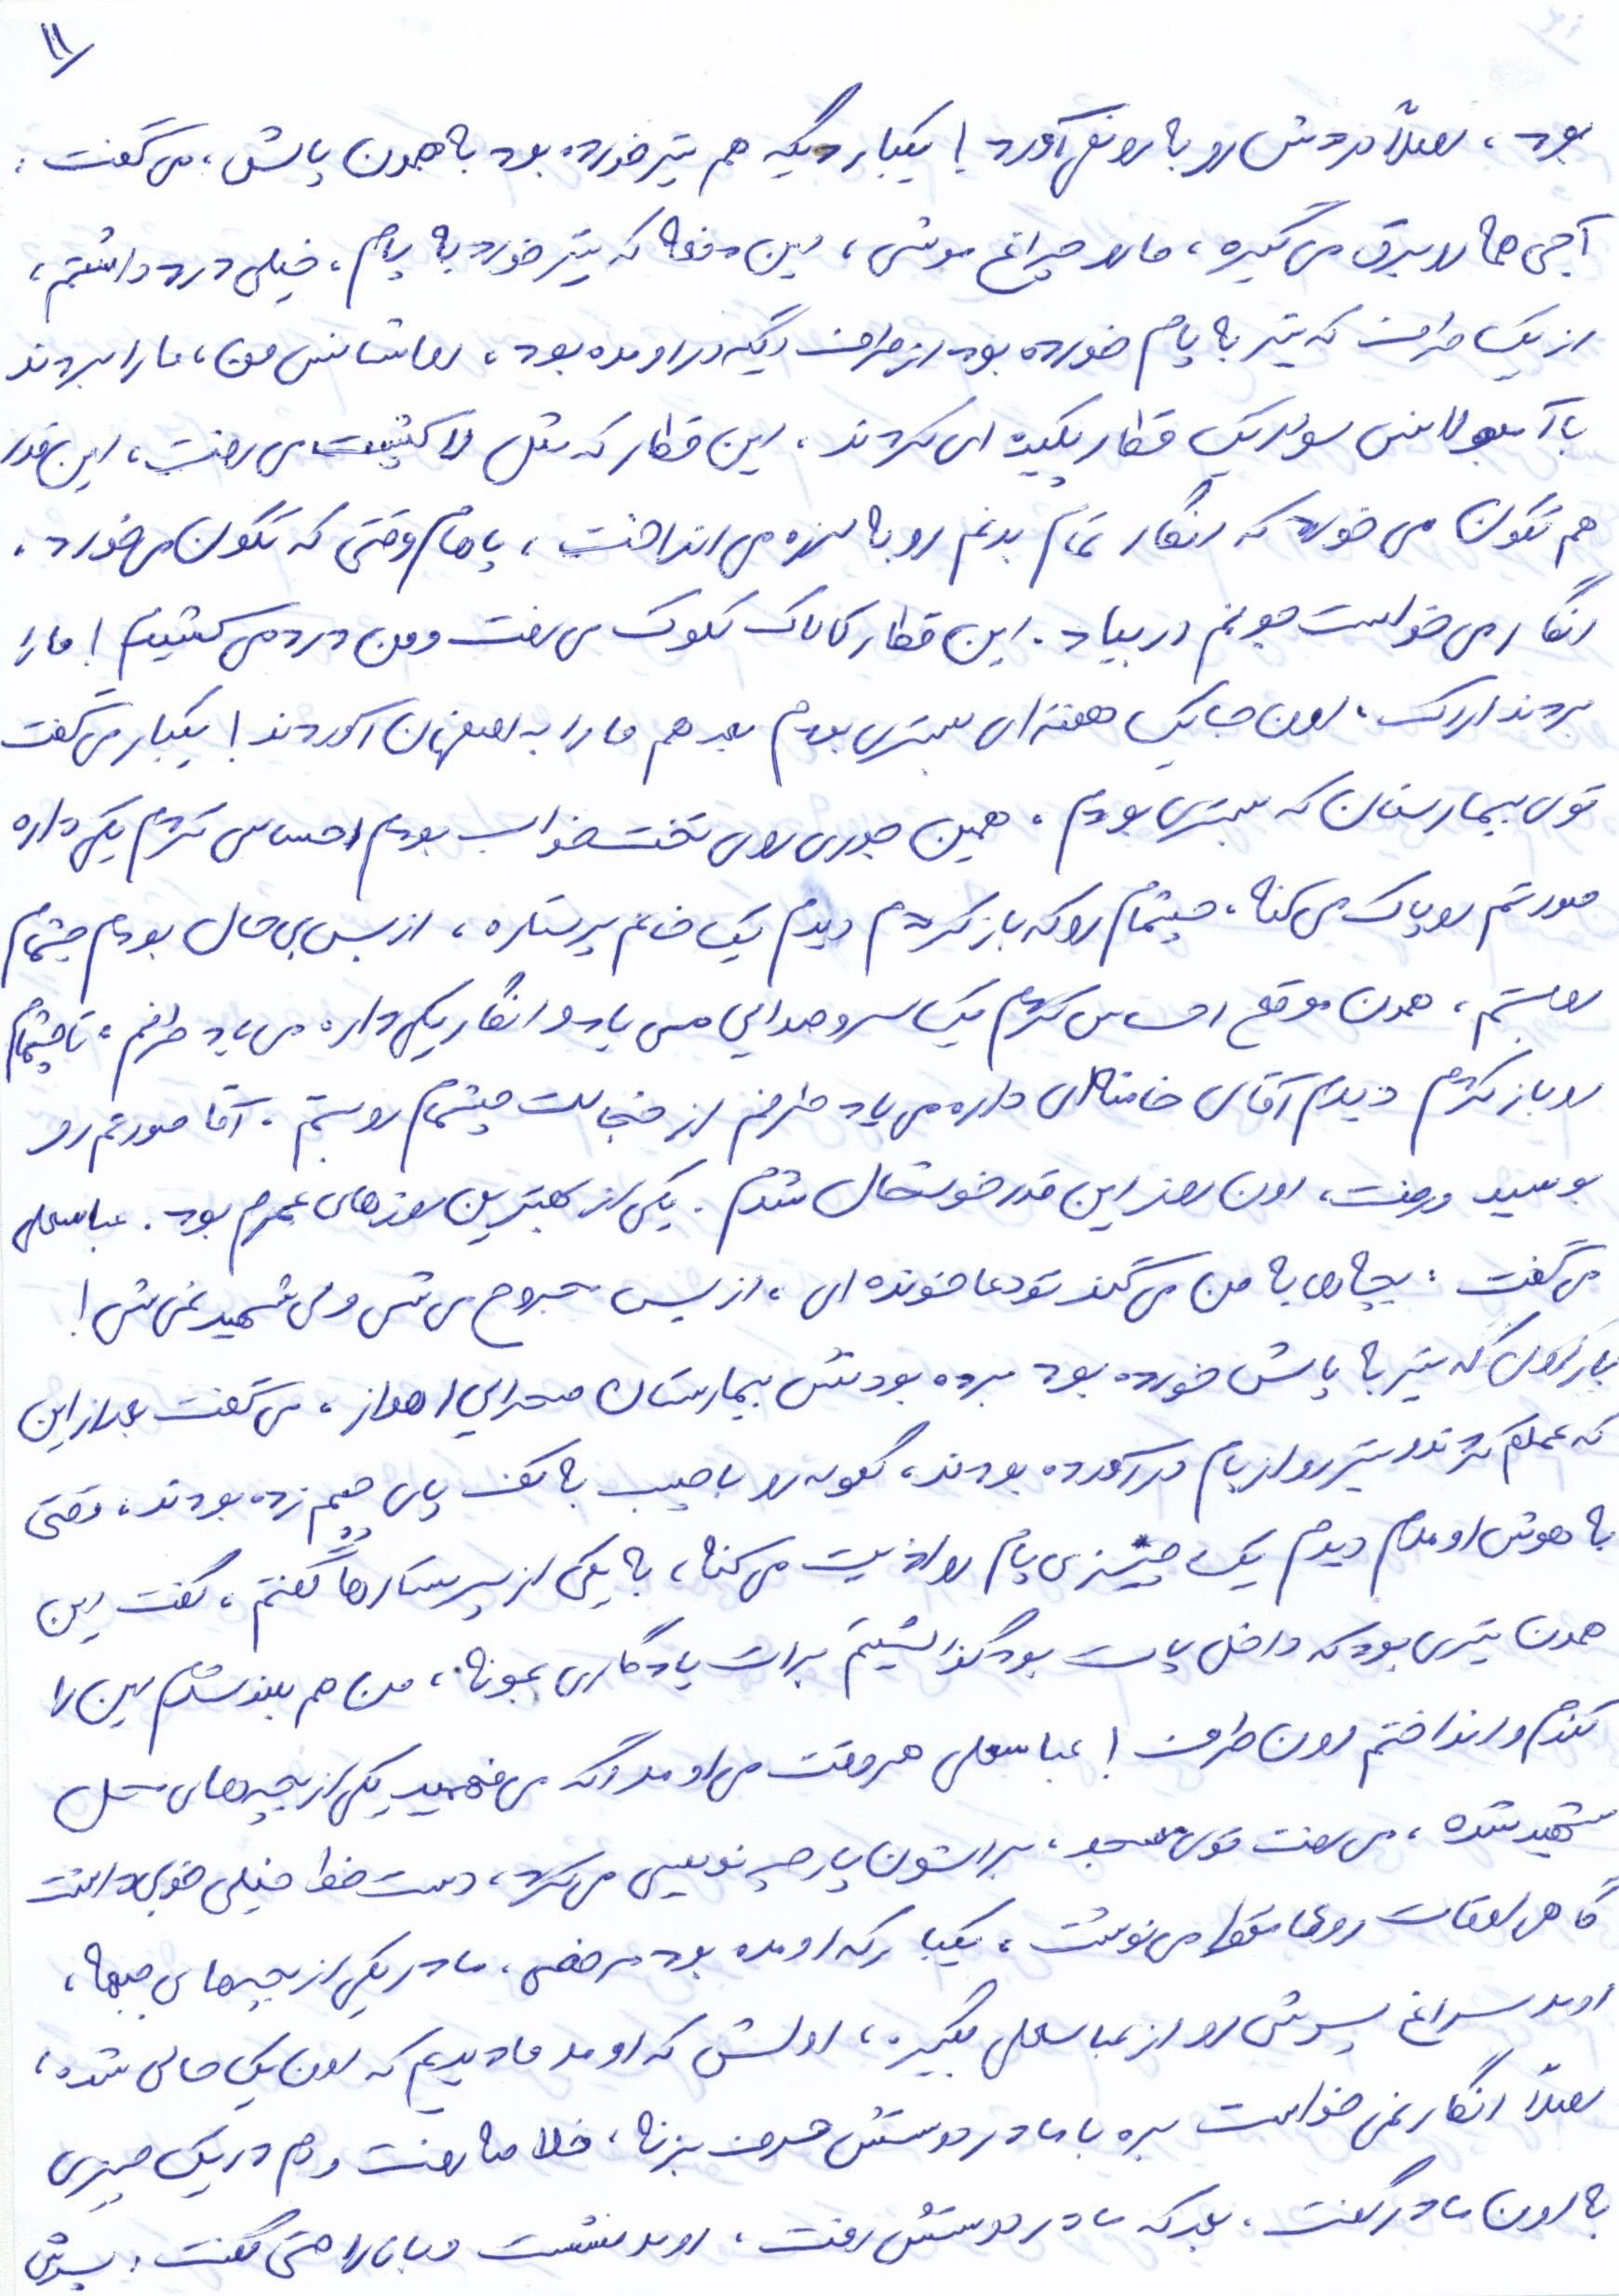 ۱۱
بود، اصلاً دردش رو به رو نمی‌آورد! یکبار دیگه هم تیر خورده بود به همون پاش، می‌گفت:
آجی همه رو برق می‌گیره، ما رو چراغ موشی، این دفعه که تیر خورد به پام، خیلی درد داشتم،
از یک طرف که تیر به پام خورده بود از طرف دیگه در اومده بود، روشانس من، ما را بردند
با آمبولانس سوار یک قطار پکیده‌ای کردند. این قطار که مثل لاکپشت می‌رفت، این قدر
هم تکون می‌خورد که انگار تمام بدنم رو به لرزه می‌انداخت، پاهام وقتی که تکون می‌خورد.
انگار می‌خواست جونم در بیاد. این قطار کاناک تکوک می‌رفت و من درد می‌کشیدم! ما را
بردند اراک، اون جا یک هفته‌ای بستری بودم بعد هم ما را به اصفهان آوردند! یکبار می‌گفت
توی بیمارستان که بستری بودم، همین جوری روی تخت خواب بودم احساس کردم یکی داره
صورتم رو پاک می‌کنه، چشمام رو که باز کردم دیدم یک خانم پرستاره، از بس بی حال بودم چشمام
رو بستم، همون موقع احساس کردم یک سرو صدایی می یاد و انگار یکی داره می‌یاد طرفم، تا چشمام
رو باز کردم دیدم آقای خامنه‌ای داره می‌یاد طرفم از خجالت چشمام رو بستم. آقا صورتم رو
بوسید و رفت، اون روز این قدر خوشحال شدم. یکی از بهترین روزهای عمرم بود. عباسعلی
می‌گفت: بچه‌ها به من می‌گند تو دعا خونده‌ای، از بس مجروح می‌شی ولی شهید نمی‌شی!
بار اولی که تیر به پاش خورده بود برده بودنش بیمارستان صحرایی اهواز، می‌گفت بعد از این
که عملم کردند و تیر رو از پام درآورده بودند، گلوله رو با چسب به کف پای چپم زده بودند، وقتی
به هوش اومدم دیدم یک چیزی پام رو اذیت می‌کنه، به یکی از پرستارها گفتم، گفت این
همون تیری بود که داخل پات بود گذاشتیم برات یادگاری بمونه، من هم بلند شدم این را
کندم و انداختم اون طرف! عباسعلی هر وقت می‌اومد اگه می‌فهمید یکی از بچه‌های محل
شهید شده، می‌رفت توی مسجد، براشون پارچه نویسی می‌کرد، دست خط خیلی خوبی داشت
گاهی اوقات روی مقوا می‌نوشت، یکبار که اومده بود مرخصی، مادر یکی از بچه‌های جبهه،
اومد سراغ پسرش رو از عباسعلی بگیره، اولش که اومد ما دیدیم که اون یک حالی شده،
اصلاً انگار نمی‌خواست بره با مادر دوستش حرف بزنه، خلاصه رفت دم در یک چیزی
به اون مادر گفت. بعد که مادر دوستش رفت، اومد نشست و با ناراحتی گفت: پسرش